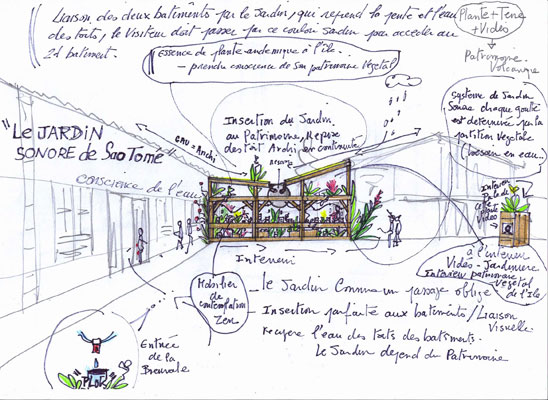 Liaison des deux batiments par le Jardin, qui reprend la pente et l'eau
des toits, le Visiteur doit passer par ce couloir Jardin pour acceder au
2d batiment.
Plante + Terre
+ Vidéo
Patrimoine
Volcanique
essence de plante endemique à l'île.
- prendre conscience de son patrimoine Végetal
Système de Jardin
Sonore chaque goutte
est determinée par la
partition Vegetale
(besoin en eau...
Insertion du Jardin
au Patrimoine, Reprise
des toit Archi, en continuité
arrosage
"Le JARDIN
SONORE de Sao Tomé"
eau = Archi
conscience de l'eau
Interieur
Video
à l'interieur
Vidéo - Jardiniere
Interview patrimoine
Vegetal
de l'Ile
Interieur
Mobilier
de
contemplation
Zen
- le Jardin Comme un passage obligé
- Insertion parfaite aux batiments / Liaison
Visuelle.
Recupere l'eau des toits des batiments.
Le Jardin depend du Patrimoine
Entrée
de la
Biennale
"PLOK"